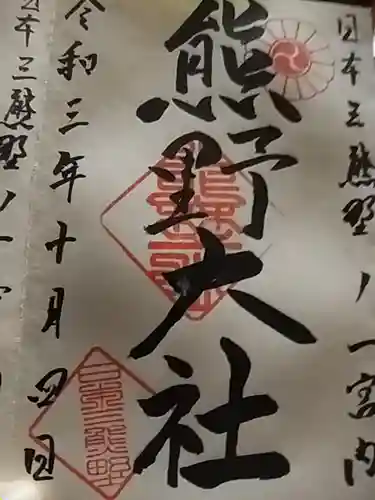 日本三熊野ノ一宮内
熊野大社
令和三年十月四日
日本三熊野ノ一宮